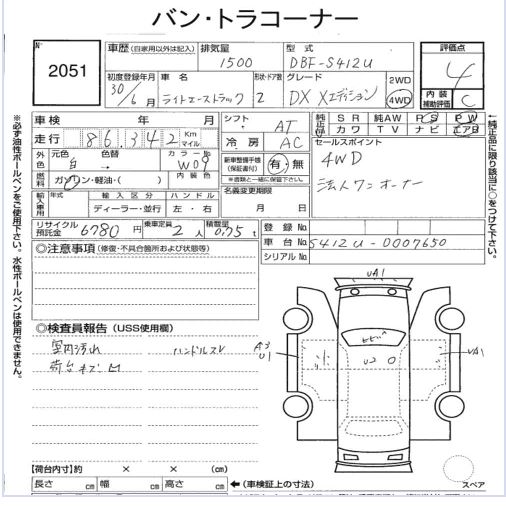 バン・トラコーナー
No
2051
車歴 (自家用以外は記入) 排気量 型式
1500 DBF-S412U
初度登録年月 車名 形状・ドア数 グレード
30/6月 ライトエーストラック 2 DX Xエディション
2WD
4WD
評価点
4
内装補助評価
C
車検 年 月
走行 86,342 Km マイル
外色 元色 色替 カラーNo
白 → W09
燃料 ガソリン・軽油・( ) 内装色
輸入車用 年式 輸入区分 ハンドル
ディーラー・並行 左・右
シフト AT
冷房 AC
新車整備手帳(保証書付) 有・無
※書類と一緒に保管して下さい。
名義変更期限
月 日
純正 SR 純正AW PS PW
カワ TV ナビ エアB
セールスポイント
4WD
法人ワンオーナー
リサイクル預託金 6780円 乗車定員 2人 積載量 0.75t
登録No
車台No S412U-0007650
シリアルNo
◎注意事項 (修復・不具合箇所および状態等)
◎検査員報告 (USS使用欄)
室内汚れ ハンドルスレ
荷台キズ凹
UA1
A3
U1
UA1
【荷台内寸】約 × × (cm)
長さ cm 幅 cm 高さ cm
←(車検証上の寸法)
スペア
※必ず油性ボールペンをご使用下さい。水性ボールペンは使用できません。
↑純正品に限り該当に○をつけて下さい。